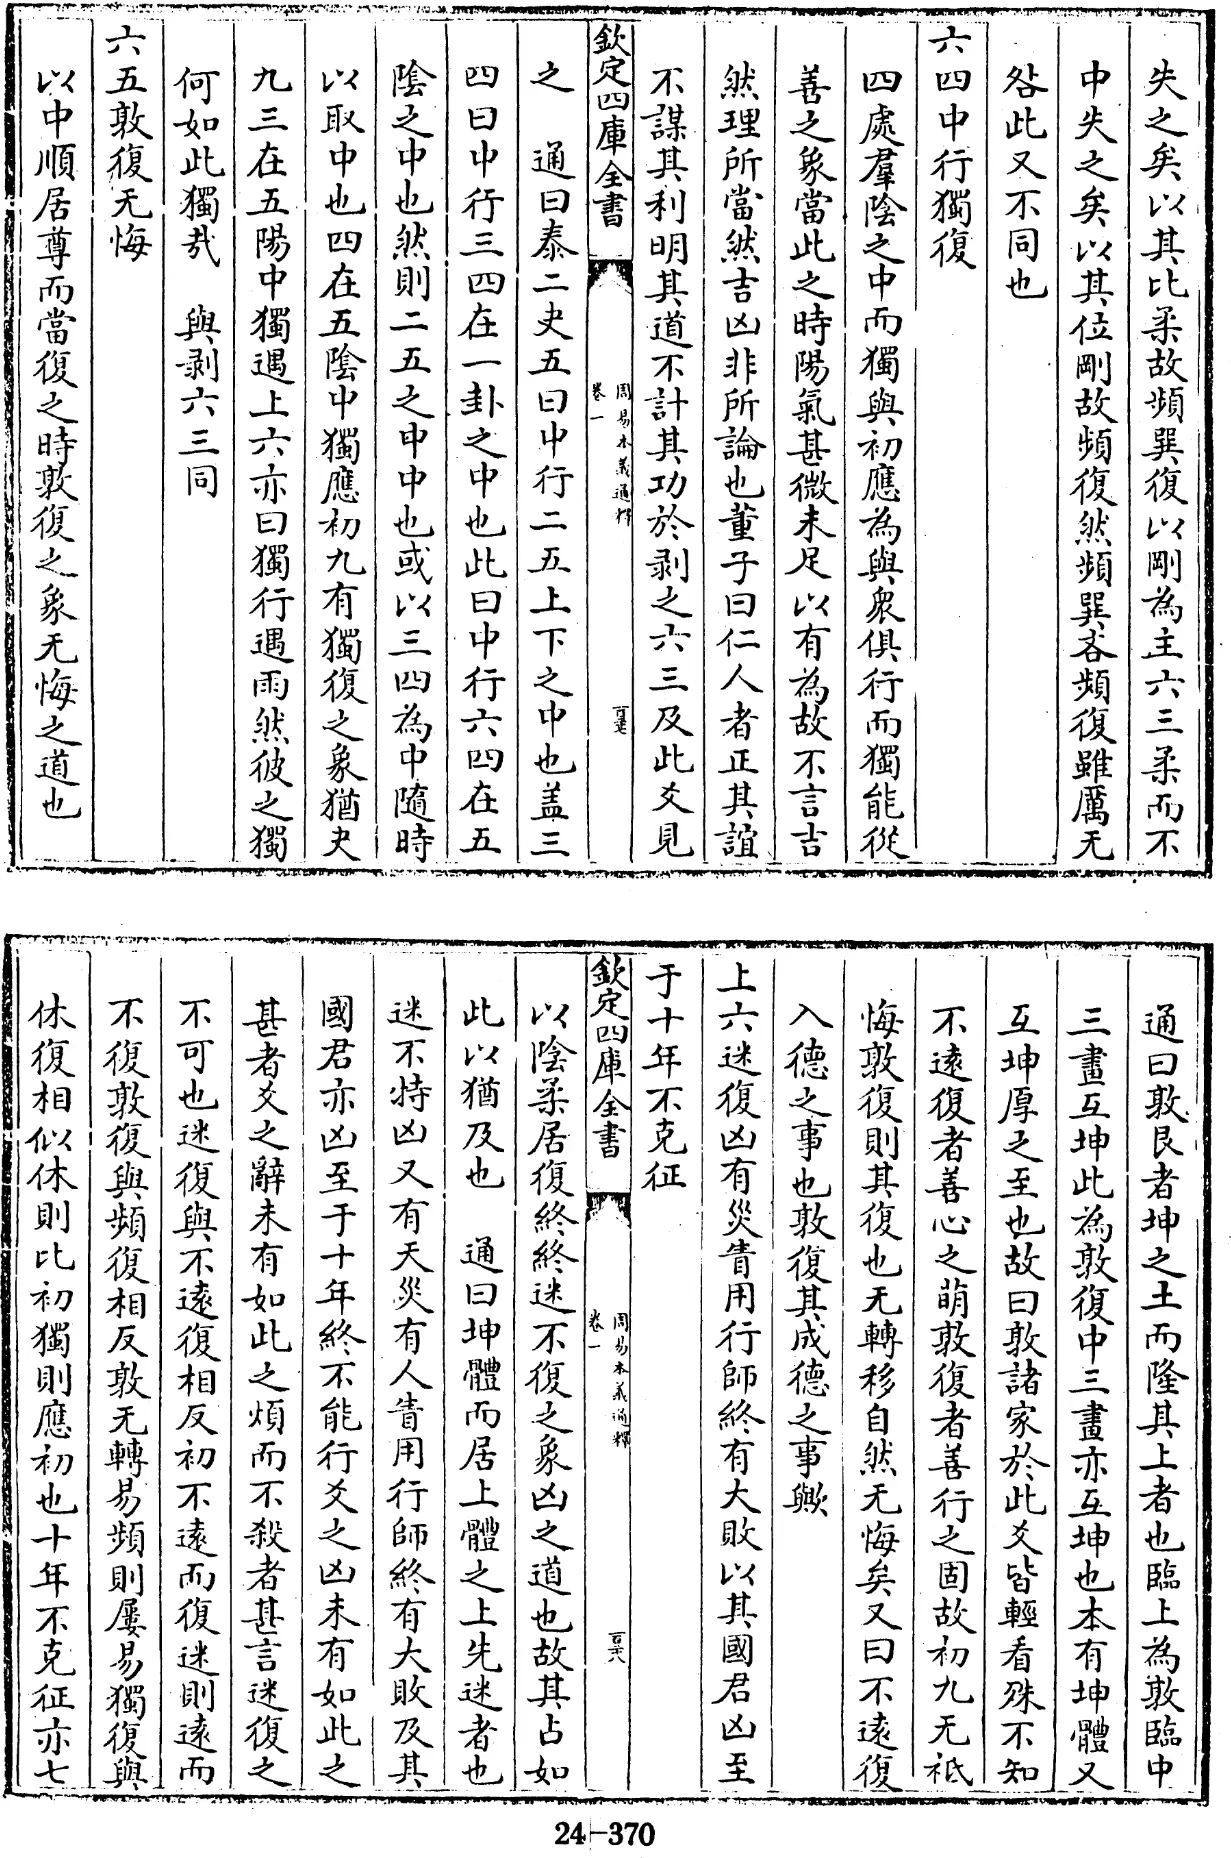 失之矣以其比柔故頻巽復以剛為主六三柔而不
中失之矣以其位剛故頻復然頻巽吝頻復雖厲无
咎此又不同也
六四中行獨復
四處羣陰之中而獨與初應為與衆俱行而獨能從
善之象當此之時陽氣甚微未足以有為故不言吉
然理所當然吉凶非所論也董子曰仁人者正其誼
不謀其利明其道不計其功於剥之六三及此爻見
欽定四庫全書
周易本義通釋
卷一
之 通曰泰二夬五曰中行二五上下之中也盖三
四曰中行三四在一卦之中也此曰中行六四在五
陰之中也然則二五之中中也或以三四為中隨時
以取中也四在五陰中獨應初九有獨復之象猶夬
九三在五陽中獨遇上六亦曰獨行遇雨然彼之獨
何如此獨㢤 與剥六三同
六五敦復无悔
以中順居尊而當復之時敦復之象无悔之道也
通曰敦艮者坤之土而隆其上者也臨上為敦臨中
三畫互坤此為敦復中三畫亦互坤也本有坤體又
互坤厚之至也故曰敦諸家於此爻皆輕看殊不知
不逺復者善心之萌敦復者善行之固故初九无祇
悔敦復則其復也无轉移自然无悔矣又曰不逺復
入德之事也敦復其成德之事歟
上六迷復凶有災眚用行師終有大敗以其國君凶至
于十年不克征
欽定四庫全書
周易本義通釋
卷一
以陰柔居復終終迷不復之象凶之道也故其占如
此以猶及也 通曰坤體而居上體之上先迷者也
迷不特凶又有天災有人眚用行師終有大敗及其
國君亦凶至于十年終不能行爻之凶未有如此之
甚者爻之辭未有如此之煩而不殺者甚言迷復之
不可也迷復與不逺復相反初不逺而復迷則逺而
不復敦復與頻復相反敦无轉易頻則屢易獨復與
休復相似休則比初獨則應初也十年不克征亦七
24-370